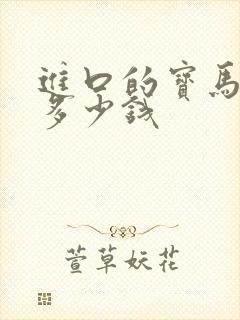 進口的寶馬
多少錢
萱草妖花